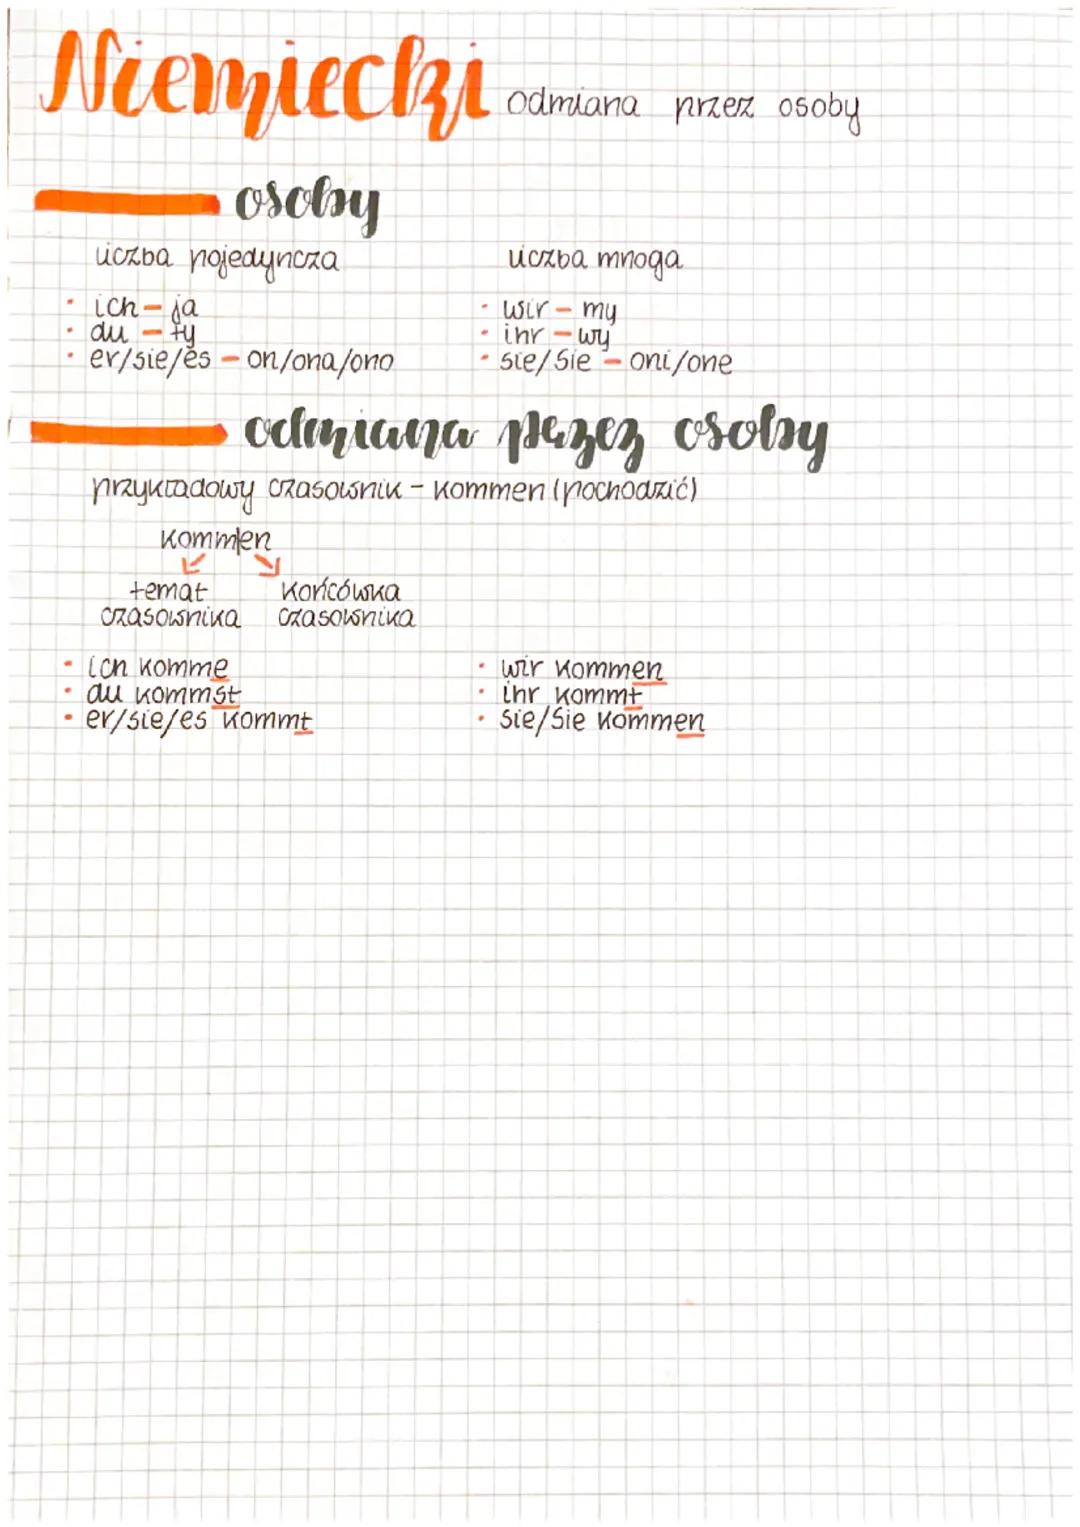 Niemiecki odmiana przez osoby
osoby
liczba pojedyncza liczba mnoga
• ich – ja • wir – my
• du – ty • ihr – wy
• er/sie/es – on/ona/ono • sie/Sie – oni/one
odmiana przez osoby
przykładowy czasownik - kommen (pochodzić)
komm|en
temat końcówka
czasownika czasownika
• ich komme • wir kommen
• du kommst • ihr kommt
• er/sie/es kommt • sie/Sie kommen